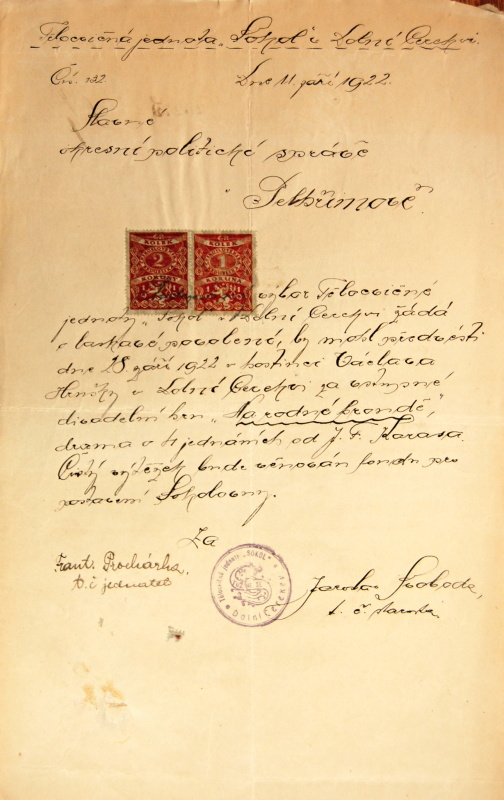 Tělocvičná jednota „Sokol“ v Dolní Cerekvi.
Čís. 132 Dne 11. září 1922.
Slavné
okresní politické správě
v Pelhřimově.
ČS ČS
KOLEK KOLEK
2 1
KORUNY KORUNA
výbor Tělocvičné
jednoty „Sokol“ v Dolní Cerekvi žádá
o laskavé povolení, by mohl předvésti
dne 28. září 1922 v hostinci Václava
v Dolní Cerekvi za vstupné
divadelní hru „Na rodné hroudě“,
drama o 4 jednáních od J. F. Karasa.
Čistý výtěžek bude věnován fondu pro
postavení Sokolovny.
Za
Frant. Procházka, Jaroslav Svoboda,
t. č. jednatel t. č. starosta
Tělocvičná jednota „SOKOL“ v Dolní